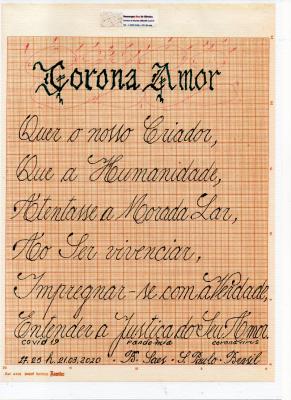 Corona Amor
Quer o nosso Criador,
Que a Humanidade,
Atentasse a Morada Lar,
Ao Ser vivenciar,
Impregnar-se com a Verdade,
Entender a Justiça do Seu Amor.
covid 19 pandemia coronavirus
21.03.2020 - B. Saes - S. Paulo - Brasil